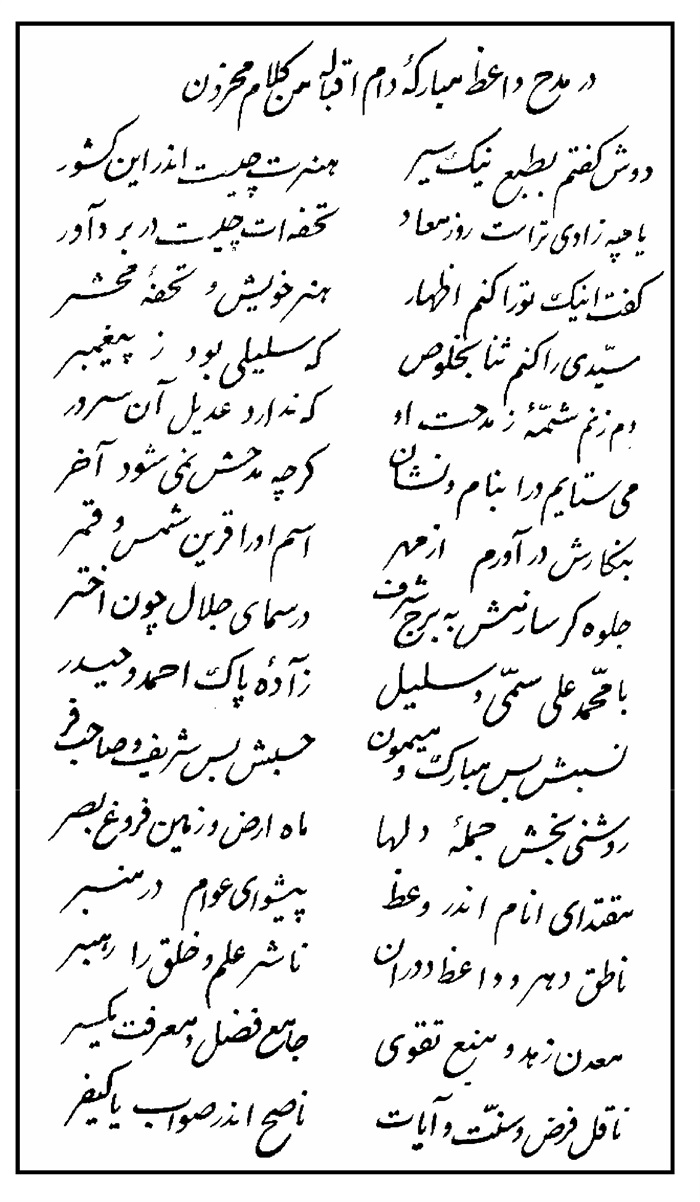 در مدح واعظ مبارکهٔ دام اقباله من کلام محزون
دوش گفتم بطبع نیک سیر هنرت چیست اندر این کشور
یا چه زادی تراست روز معاد تحفه‌ات چیست در بر داور
گفت اینک تورا کنم اظهار هنر خویش و تحفهٔ محشر
سیّدی را کنم ثنا بخلوص که سلیلی بود ز پیغمبر
دم زنم شمّهٔ ز مدحت او که ندارد عدیل آن سرور
می ستایم ورا بنام و نشان گرچه مدحش نمی شود آخر
بنگارش در آورم از مهر اسم اورا قرین شمس و قمر
جلوه گر سازمش به برج شرف در سمای جلال چون اختر
با محمّد علی سمّی و سلیل زآدهٔ پاک احمد و حیدر
نسبش بس مبارک و میمون حسبش بس شریف و صاحب فر
روشنی بخش جملهٔ دلها ماه ارض و زمین فروغ بصر
مقتدای انام اندر وعظ پیشوای عوام در منبر
ناطق دهر و واعظ دوران ناشر علم و خلق را رهبر
معدن زهد و منبع تقوی جامع فضل و معرفت یکسر
ناقل فرض و سنّت و آیات ناصح اندر صواب یا کیفر